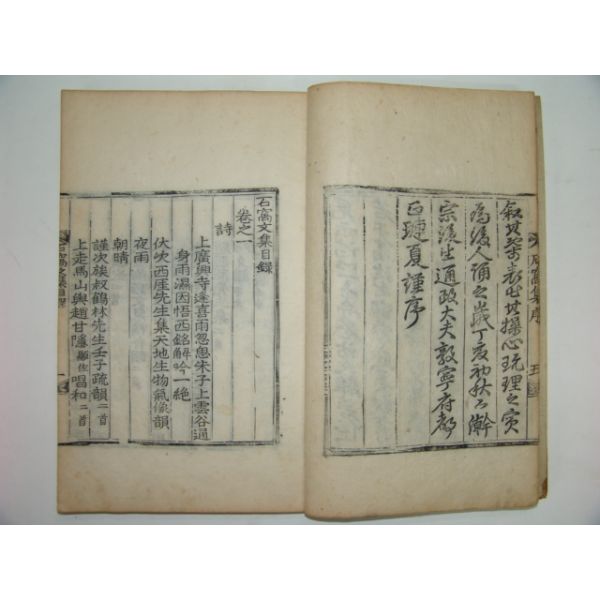 叙其
表出其操心玩理之實
爲後人誦之歲丁亥初秋下澣
宗後生通政大夫敦寧府都
正璉夏謹序
石窩集序
五
石窩文集目錄
卷之一
詩
上廣興寺逢喜雨忽思朱子上雲谷通
身雨濕因悟西銘解吟一絶
伏次西厓先生集天地生物氣像韻
夜雨
朝晴
謹次族叔鶴林先生壬子疏韻二首
上走馬山與趙甘隱唱和二首
石窩文集目錄
一